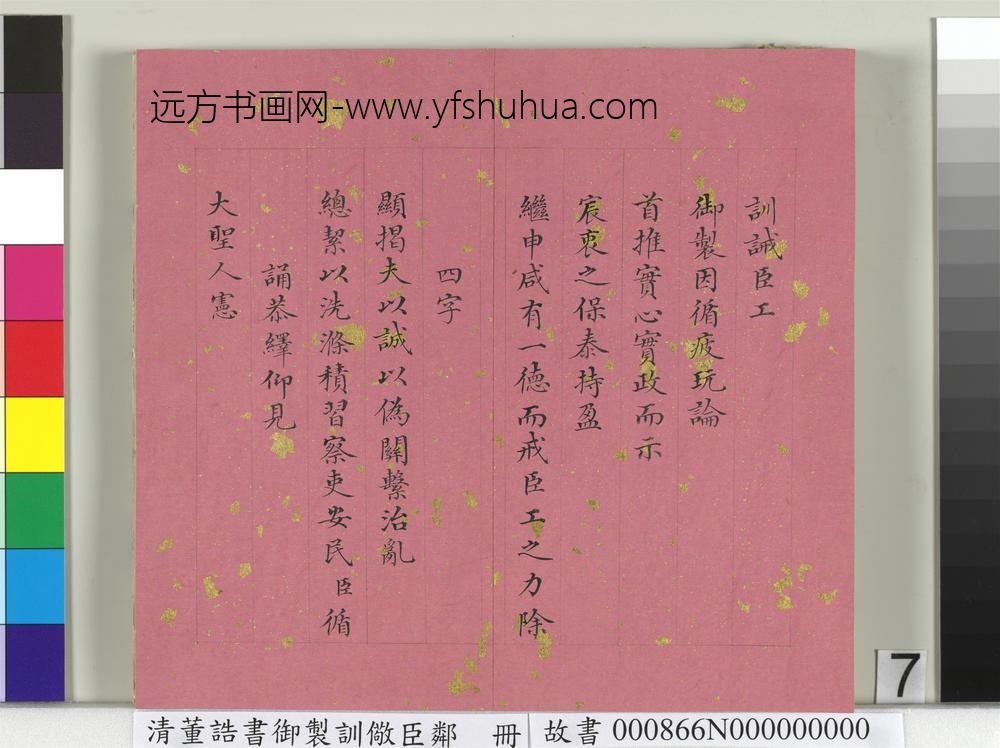 远方书画网-www.yfshuhua.com
訓誡臣工
御製因循疲玩論
首推實心實政而示
宸衷之保泰持盈
繼申咸有一德而戒臣工之力除
四字
顯揭夫以誠以偽關繫治亂
總絜以洗滌積習察吏安民臣循
誦恭繹仰見
大聖人憲
7
清董誥書御製訓儆臣鄰 冊
故書 000866N000000000